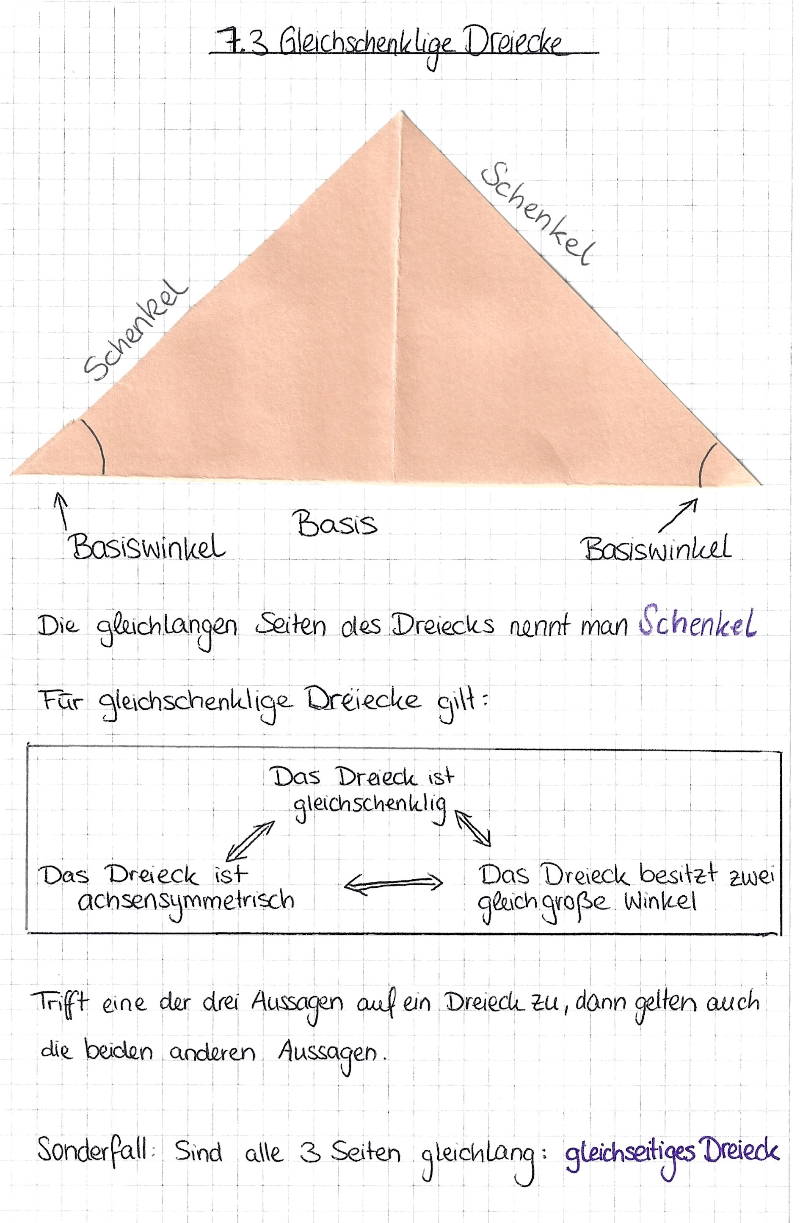 7.3 Gleichschenklige Dreiecke
Schenkel
Schenkel
Basis
Basiswinkel
Basiswinkel
Die gleichlangen Seiten des Dreiecks nennt man Schenkel
Für gleichschenklige Dreiecke gilt:
Das Dreieck ist
gleichschenklig
Das Dreieck ist
achsensymmetrisch
Das Dreieck besitzt zwei
gleichgroße Winkel
Trifft eine der drei Aussagen auf ein Dreieck zu, dann gelten auch
die beiden anderen Aussagen.
Sonderfall: Sind alle 3 Seiten gleichlang: gleichseitiges Dreieck